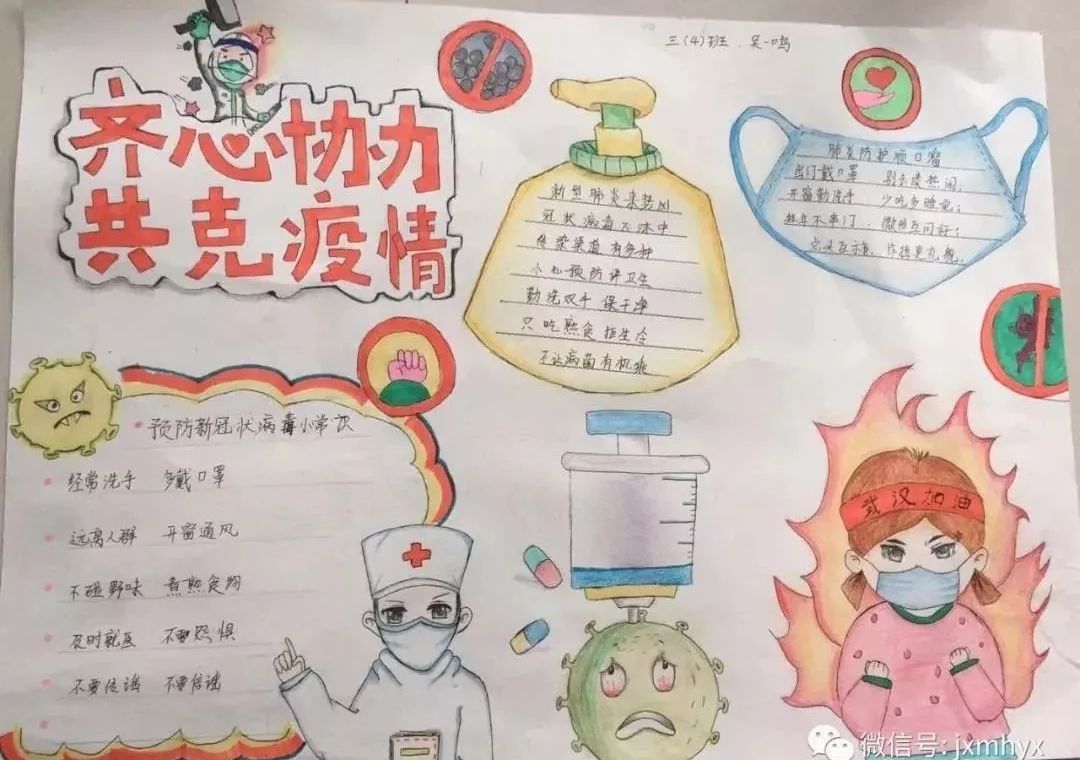 三(4)班 吴一鸣
齐心协力
共克疫情
新型肺炎来势凶
冠状病毒飞沫中
传染渠道有多种
小心预防讲卫生
勤洗双手保干净
只吃熟食拒生冷
不让病菌有机乘
肺炎防护顺口溜
出门戴口罩 别去凑热闹,
开窗勤洗手 少吃多睡觉;
拜年不串门 微信互问好;
预防新冠状病毒小常识
经常洗手 多戴口罩
远离人群 开窗通风
不碰野味 煮熟食物
及时就医 不要恐惧
不要传谣 不要信谣
武汉加油
微信号: jxmhyx